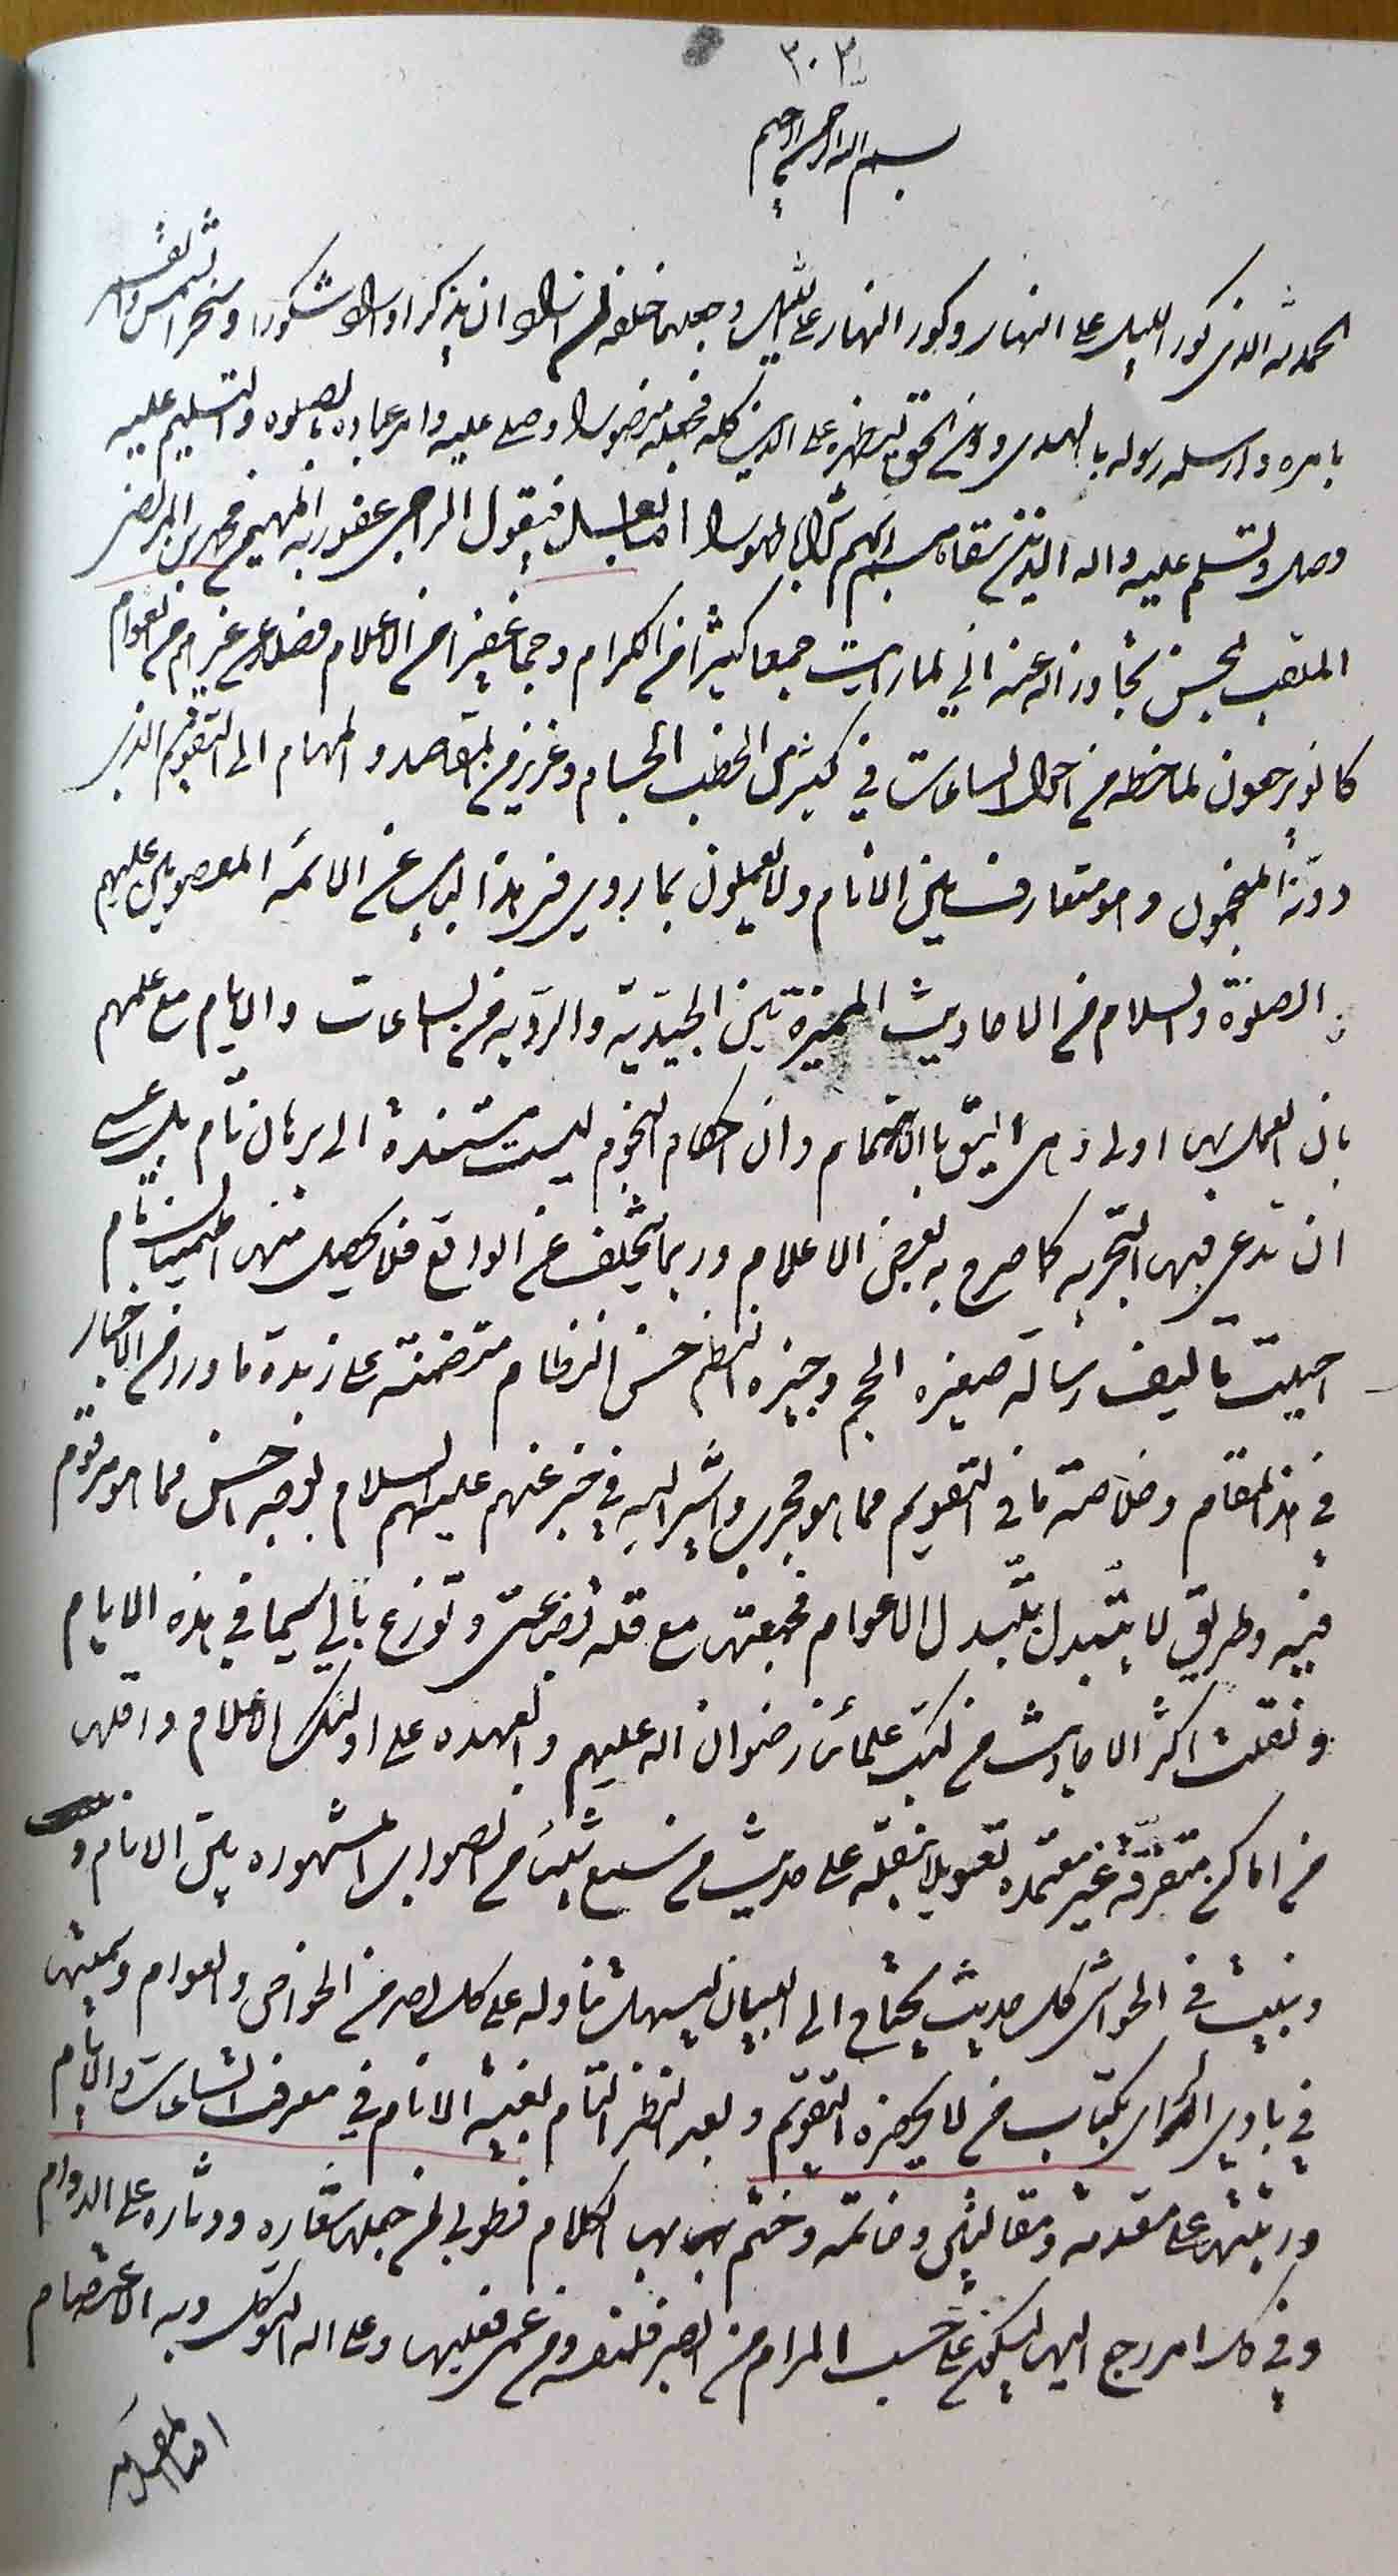 ٣٠٣
بسم الله الرحمن الرحيم
الحمد لله الذى كور الليل على النهار وكور النهار على الليل وجعلهما خلفة لمن اراد ان يذكر او اراد شكورا وسخر الشمس والقمر
بامره وارسل رسوله بالهدى ودين الحق ليظهره على الدين كله فجعله منصورا وصلى عليه وامر عباده بالصلوه والتسليم عليه
وصل وسلم عليه واله الذين سقاهم ربهم شرابا طهورا اما بعد فيقول الراجى عفو ربه المهيمن محمد بن المرتضى
الملقب بمحسن تجاوز الله عنه انى لما رايت جمعا كثيرا من الكرام وجما غفيرا من الاعلام فضلا عن غيرهم من العوام
كانوا يرجعون لملاحظة احوال الساعات في كثير من الخطب الجسام وغزير من المقاصد والمهام الى التقويم الذى
دونه المنجمون وهو متعارف بين الانام ولا يعملون بما روى فى هذا الباب عن الائمه المعصومين عليهم
الصلوة والسلام من الاحاديث المميزة بين الجيدية والردية من الساعات والايام مع علمهم
بان العمل بها اولى وهى اليق بالاهتمام وان احكام النجوم ليست مستندة الى برهان تام بل عسى
ان تدعى فيها التجربه كما صرح به بعض الاعلام وربما يتخلف عن الواقع فلا يحصل منها اطمينان تام
احببت تاليف رسالة صغيره الحجم وجيزه النظم حسن النظام متضمنة على زبدة ما ورد من الاخبار
في هذا المقام وخلاصة ما فى التقويم مما هو مجرب واشير اليه في خبر عنهم عليهم السلام بوجه احسن مما هو مرقوم
فيه وطريق لا يتبدل بتبدل الاعوام فجمعتها مع قلة بضاعتى وتوزع بالي سيما في هذه الايام
ونقلت اكثر الاحاديث من كتب علمائنا رضوان الله عليهم والعهده على اولئك الاعلام واقلها
من اماكن متفرقة غير معتمده تعويلا بنقله على حديث من سمع شيئا من الصواب المشهوره بين الانام و
وبينت في الحواشى كل حديث يحتاج الى البيان ليسهل تناوله على كل احد من الخواص والعوام وسميتها
في بادى الراى بكتاب من لا يحضره التقويم وبعد النظر التام بغية الانام في معرفة الساعات والايام
ورتبتها على مقدمة ومقالتين وخاتمة وختم بها الكلام فطوبى لمن جعلها شعاره ودثاره على الدوام
وفي كل امر رجع اليها ليكون على حسب المرام من ابصر فلنفسه ومن عمى فعليها وعلى الله التوكل وبه الاعتصام
اما المقدمه